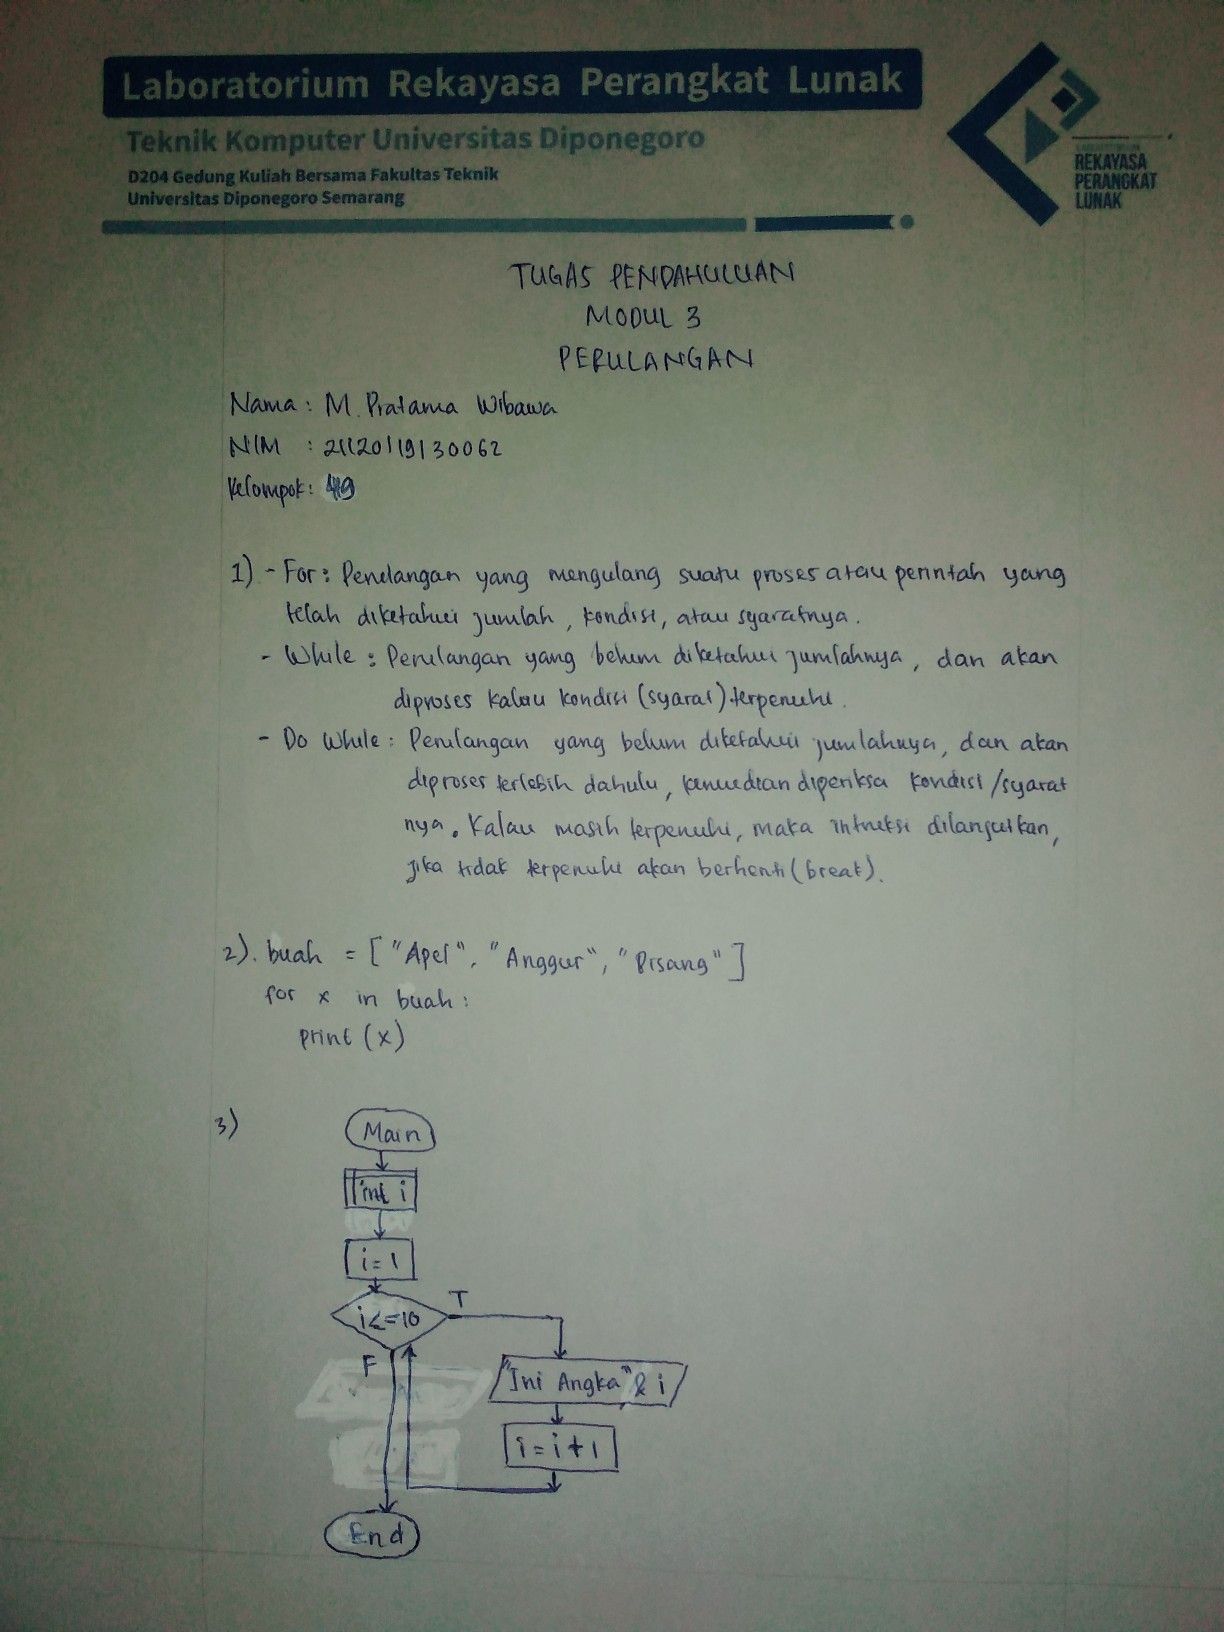 Laboratorium Rekayasa Perangkat Lunak
Teknik Komputer Universitas Diponegoro
D204 Gedung Kuliah Bersama Fakultas Teknik
Universitas Diponegoro Semarang
LABORATORIUM
REKAYASA
PERANGKAT
LUNAK
TUGAS PENDAHULUAN
MODUL 3
PERULANGAN
Nama : M. Pratama Wibawa
NIM : 21120119130062
Kelompok : 49
1) - For : Perulangan yang mengulang suatu proses atau perintah yang
telah diketahui jumlah, kondisi, atau syaratnya.
- While : Perulangan yang belum diketahui jumlahnya, dan akan
diproses kalau kondisi (syarat) terpenuhi.
- Do While : Perulangan yang belum diketahui jumlahnya, dan akan
diproses terlebih dahulu, kemudian diperiksa kondisi/syarat
nya. Kalau masih terpenuhi, maka intruksi dilanjutkan,
jika tidak terpenuhi akan berhenti (break).
2). buah = ["Apel", "Anggur", "Pisang"]
for x in buah :
print (x)
3)
Main
int i
i = 1
i <= 10
T
F
"Ini Angka" & i
i = i + 1
End